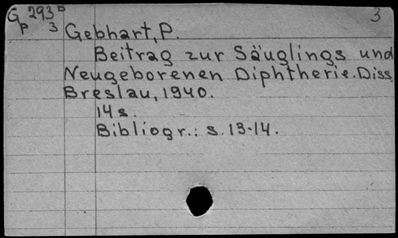 G 293 b 3
p 3 Gebhart, P.
Beitrag zur Säuglings und
Neugeborenen Diphtherie. Diss
Breslau, 1940.
14 s.
Bibliogr.: s. 13-14.